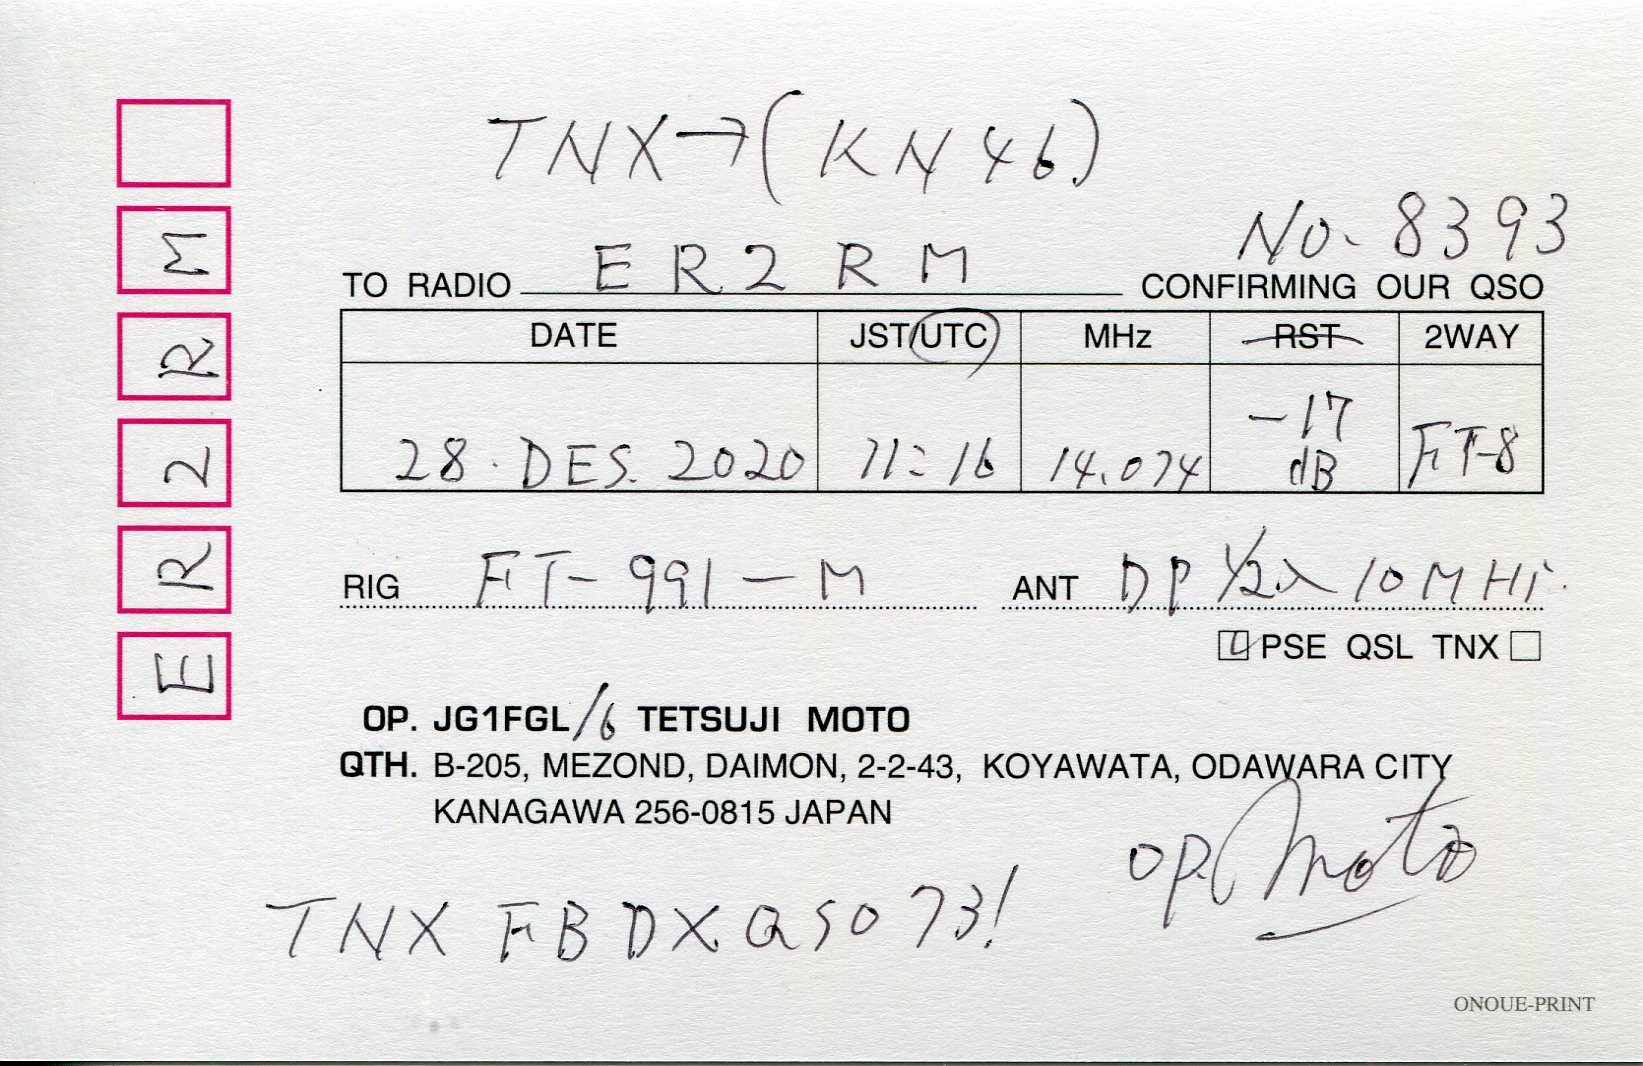 TNX→(KN46)
No. 8393
TO RADIO ER2RM CONFIRMING OUR QSO
DATE JST/UTC MHz RST 2WAY
28. DES. 2020 11:16 14.074 -17 dB FT-8
RIG FT-991-M ANT DP 1/2λ 10MHz
PSE QSL TNX
OP. JG1FGL/6 TETSUJI MOTO
QTH. B-205, MEZOND, DAIMON, 2-2-43, KOYAWATA, ODAWARA CITY
KANAGAWA 256-0815 JAPAN
op. Moto
TNX FB DX QSO 73!
ONOUE-PRINT
ER2RM